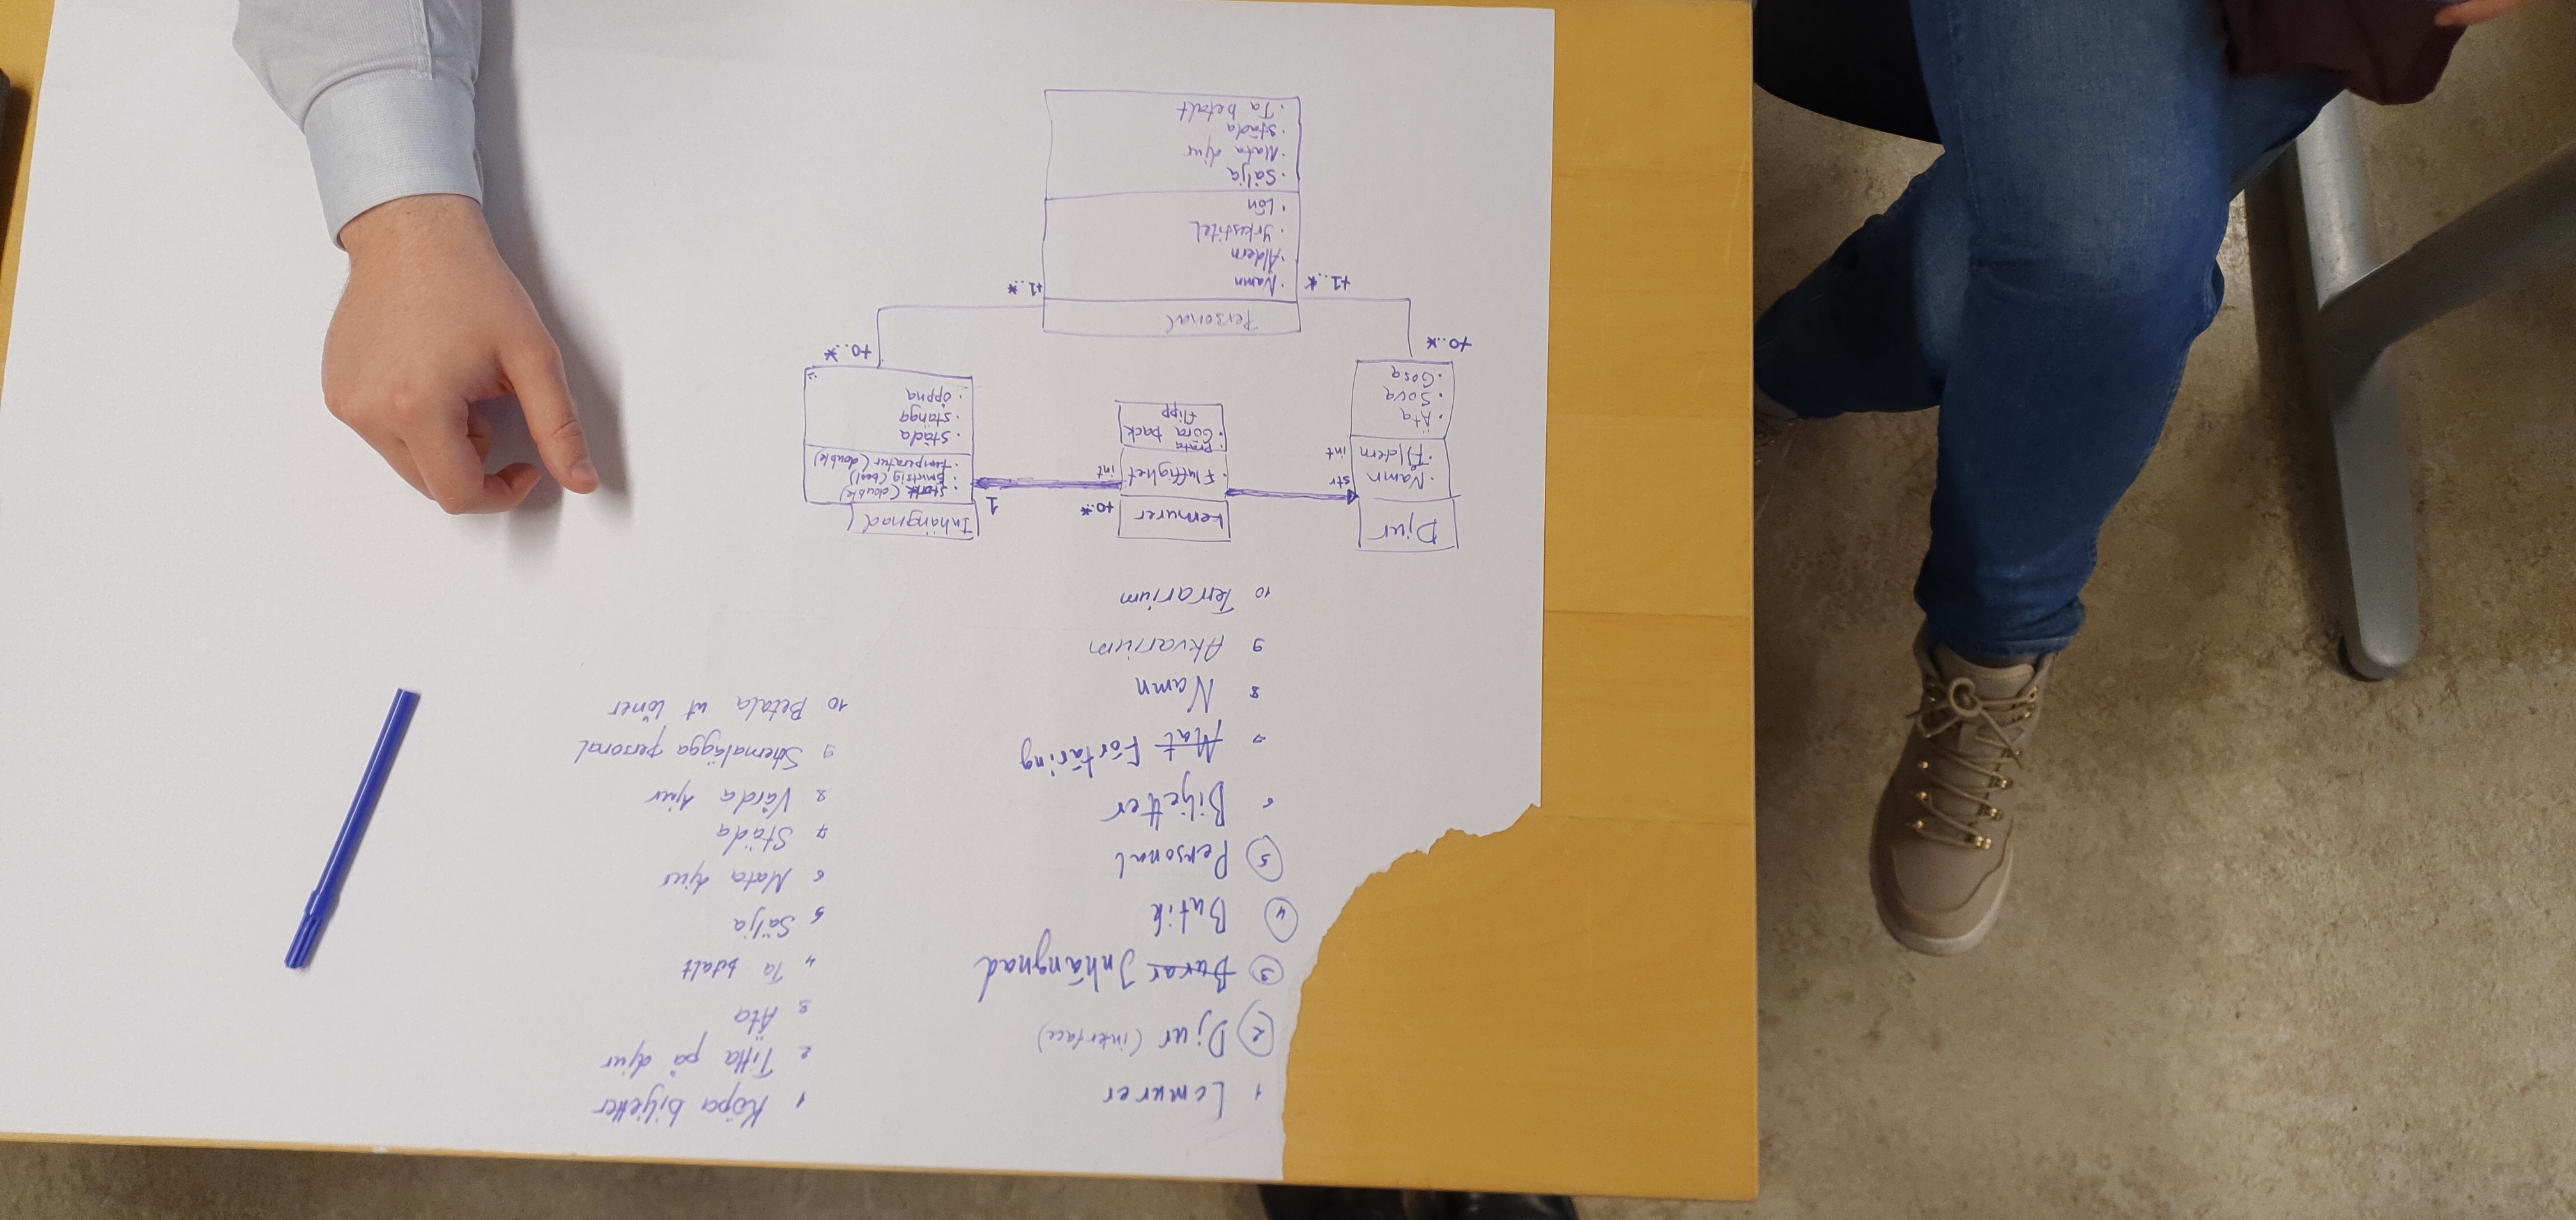 1 Lemurer
2 Djur (interface)
3 Burar Inhängnad
4 Butik
5 Personal
6 Biljetter
7 Mat Förtäring
8 Namn
9 Akvarium
10 Terrarium
1 Köpa biljetter
2 Titta på djur
3 Äta
4 Ta betalt
5 Sälja
6 Mata djur
7 Städa
8 Vårda djur
9 Schemalägga personal
10 Betala ut löner
Djur
· Namn str
· Åldern int
· Äta
· Sova
· Gosa
+0..*
Lemurer
+0..*
· Fluffighet int
· Prata
· Göra back
flipp
Inhängnad
1
· Storlek (double)
· Smutsig (bool)
· temperatur (double)
· Städa
· stänga
· öppna
+0..*
Personal
+1..*
+1..*
· Namn
· Åldern
· Yrkestitel
· Lön
· Sälja
· Mata djur
· städa
· Ta betalt